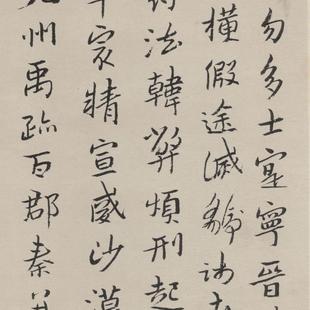 勿多士寔寧晉
橫假途滅虢踐土
法韓弊煩刑起
宸精宣威沙漠
州禹跡百郡秦并